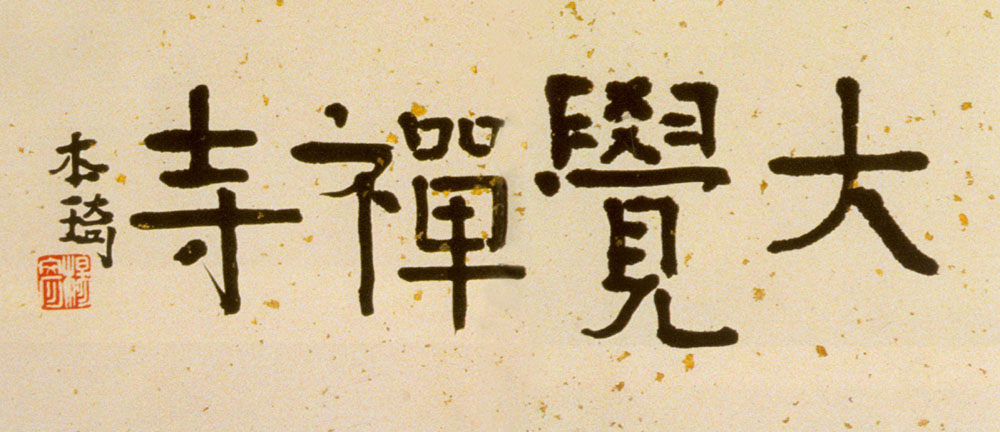 大覺禪寺
本琦